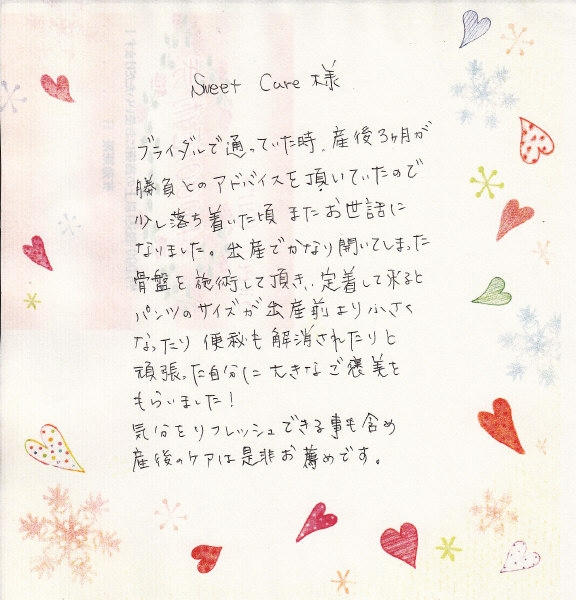 Sweet Care 様
ブライダルで通っていた時、産後3ヶ月が
勝負とのアドバイスを頂いていたので
少し落ち着いた頃 またお世話に
なりました。出産でかなり開いてしまった
骨盤を施術して頂き、定着して来ると
パンツのサイズが出産前より小さく
なったり 便秘も解消されたりと
頑張った自分に大きなご褒美を
もらいました！
気分をリフレッシュできる事も含め
産後のケアは是非お薦めです。